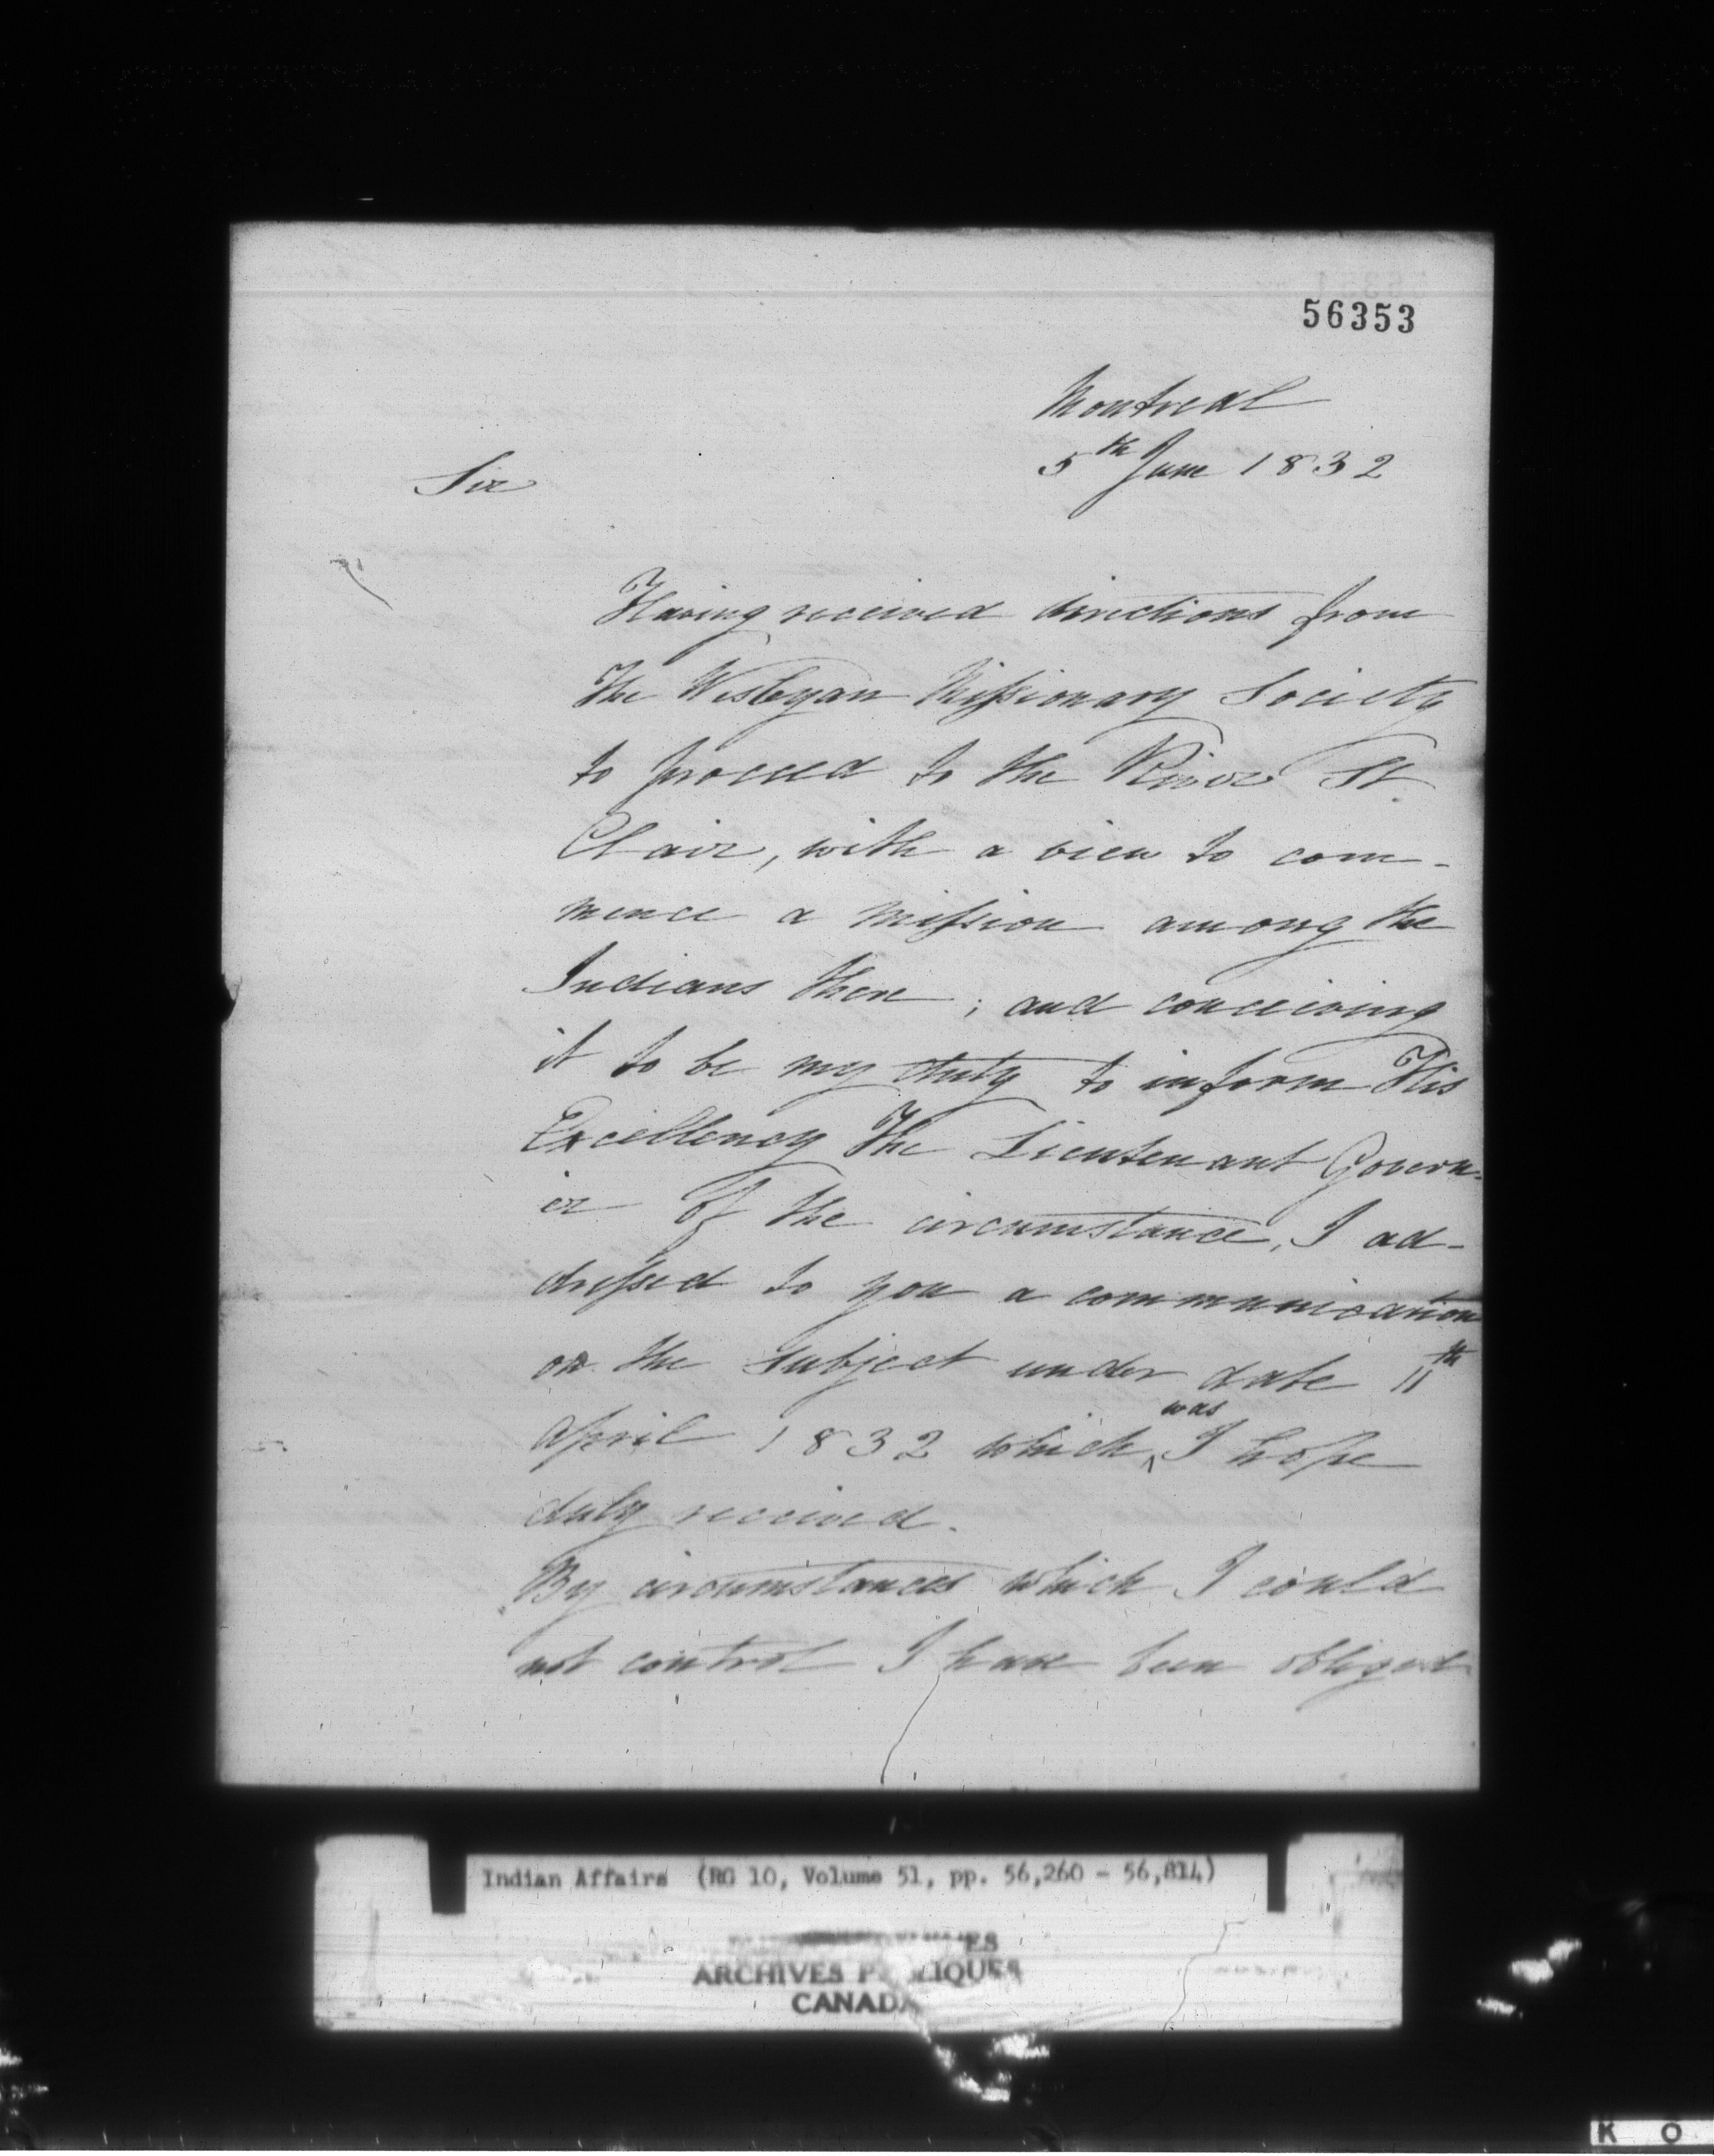 56353
Montreal
5th June 1832
Sir
Having received directions from
The Wesleyan Missionary Society
to proceed to the River St.
Clair, with a view to com-
mence a mission among the
Indians there; and conceiving
it to be my duty to inform His
Excellency The Lieutenant Govern-
or of the circumstance, I ad-
dressed to you a communication
on the subject under date 11th
April 1832 which was I hope
duly received.
By circumstances which I could
not control I have been obliged
Indian Affairs (RG 10, Volume 51, pp. 56,260 - 56,814)
ARCHIVES PUBLIQUES
CANADA
K O